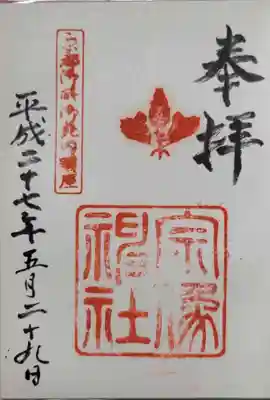 奉拝
宗像神社
京都御苑内鎮座
平成二十七年五月二十九日